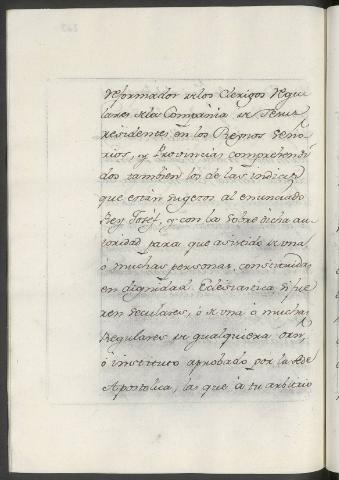 reformador de los Clerigos Regu
lares de la Compañia de Jesus
residentes en los Reynos Seño
rios, y Provincias comprehendi
dos tambien los de las Indias
que están sugetos al enunciado
Rey Josef, y con la sobre dicha au
toridad para que asistido de una
ó muchas personas constituidas
en dignidad Eclesiastica si fue
ren Seculares, ó de una ó muchas
Regulares de qualquiera orn,
ó instituto aprobado por la Sede
Apostolica, las que á tu arbitrio